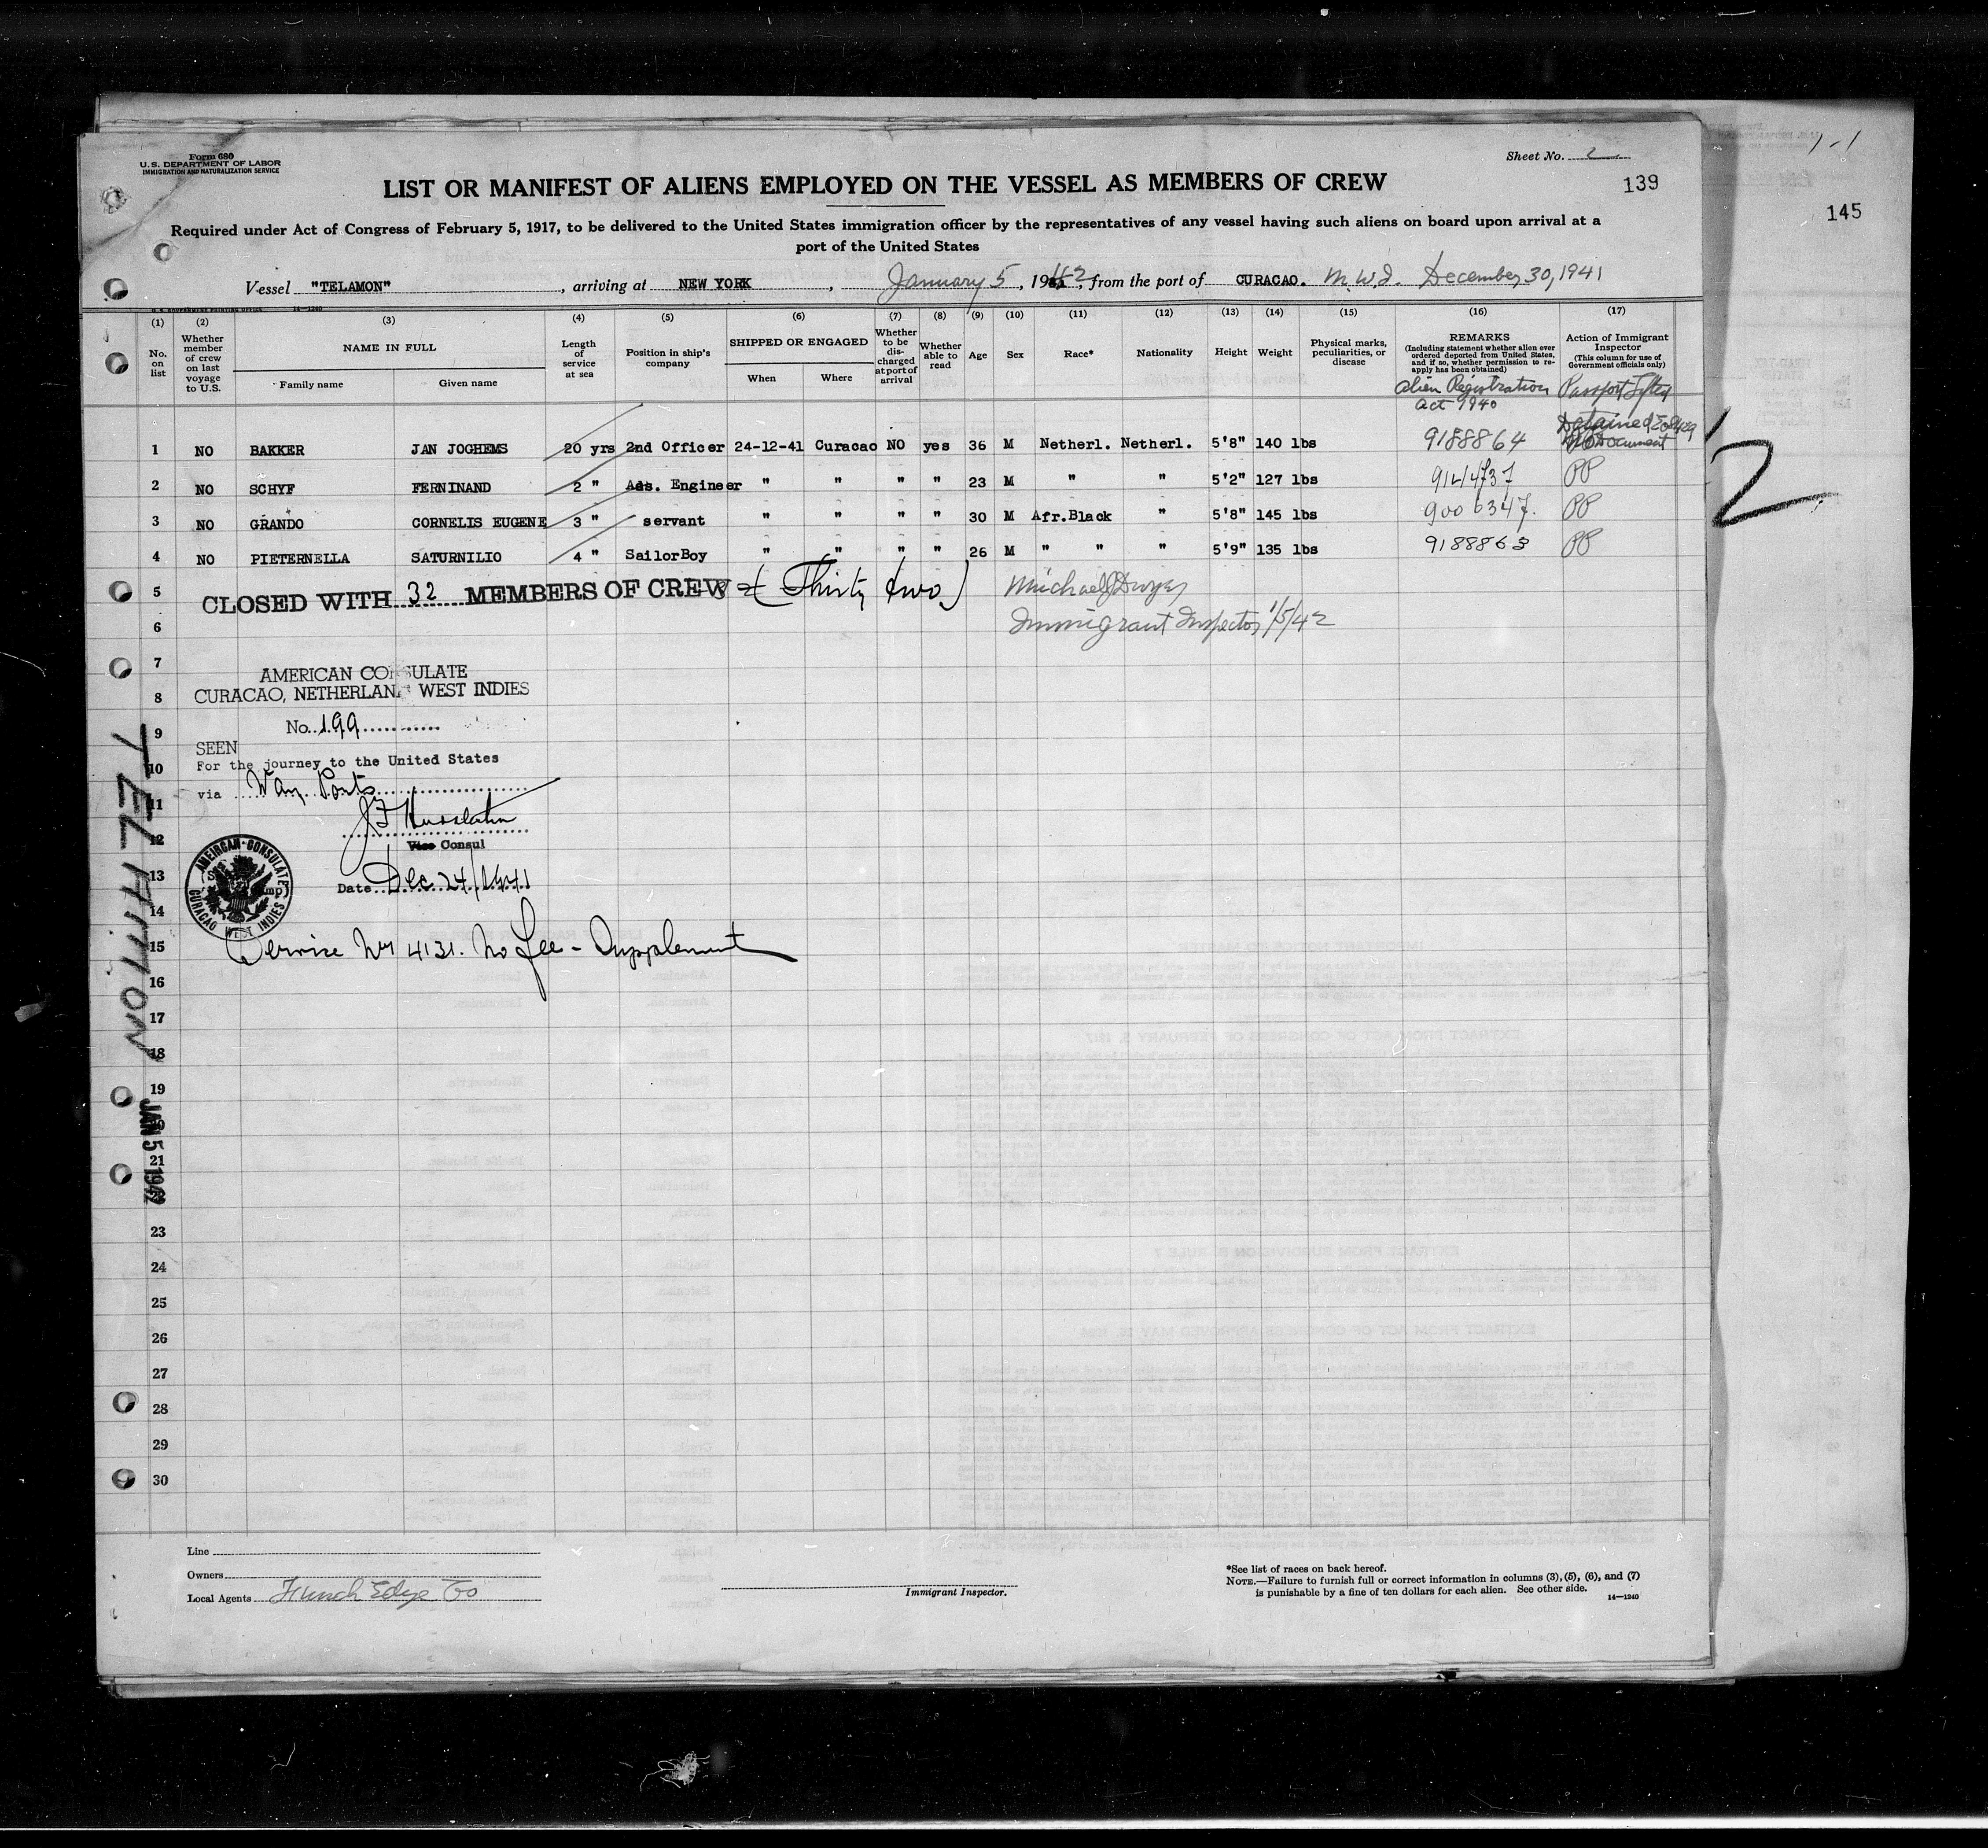 Form 680
U.S. DEPARTMENT OF LABOR
IMMIGRATION AND NATURALIZATION SERVICE
Sheet No. 2
1-1
LIST OR MANIFEST OF ALIENS EMPLOYED ON THE VESSEL AS MEMBERS OF CREW
139
145
Required under Act of Congress of February 5, 1917, to be delivered to the United States immigration officer by the representatives of any vessel having such aliens on board upon arrival at a
port of the United States
Vessel "TELAMON", arriving at NEW YORK, January 5, 1942, from the port of CURACAO. December 30, 1941
U. S. GOVERNMENT PRINTING OFFICE 14—1240
(1) (2) (3) (4) (5) (6) (7) (8) (9) (10) (11) (12) (13) (14) (15) (16) (17)
No. on list
Whether member of crew on last voyage to U.S.
NAME IN FULL
Family name
Given name
Length of service at sea
Position in ship's company
SHIPPED OR ENGAGED
When
Where
Whether to be discharged at port of arrival
Whether able to read
Age
Sex
Race*
Nationality
Height
Weight
Physical marks, peculiarities, or disease
REMARKS
(Including statement whether alien ever ordered deported from United States, and if so, whether permission to reapply has been obtained)
Action of Immigrant Inspector
(This column for use of Government officials only)
Alien Registration
Act 1940
Passport Lifted
Detained
No Document
1 NO BAKKER JAN JOGHEMS 20 yrs 2nd Officer 24-12-41 Curacao NO yes 36 M Netherl. Netherl. 5'8" 140 lbs 9188864
2 NO SCHYF FERNINAND 2 " Ass. Engineer " " " " 23 M " " 5'2" 127 lbs 9144737 PP
3 NO GRANDO CORNELIS EUGENE 3 " servant " " " " 30 M Afr.Black " 5'8" 145 lbs 9006347. PP
4 NO PIETERNELLA SATURNILIO 4 " SailorBoy " " " " 26 M " " " 5'9" 135 lbs 9188863 PP
2
5 CLOSED WITH 32 MEMBERS OF CREW (Thirty two) Michael J Dwyer
6 Immigrant Inspector 1/5/42
7 AMERICAN CONSULATE
8 CURACAO, NETHERLAND WEST INDIES
9 No. 199
SEEN
10 For the journey to the United States
11 via Way Ports
12 Vice Consul
13 Date Dec. 24/1941
AMERICAN CONSULATE
CURACAO WEST INDIES
14
15 Service No 4131. No Fee - Supplement
16
17
18
19
20
21
23
24
25
26
27
28
29
30
JAN 5 1942
Line
Owners
Local Agents Funch Edye Co
Immigrant Inspector.
*See list of races on back hereof.
NOTE.—Failure to furnish full or correct information in columns (3), (5), (6), and (7)
is punishable by a fine of ten dollars for each alien. See other side.
14—1240